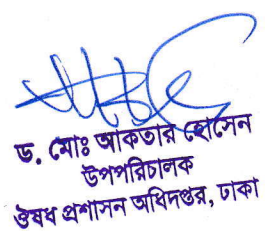 ড. মোঃ আকতার হোসেন
উপপরিচালক
ঔষধ প্রশাসন অধিদপ্তর, ঢাকা